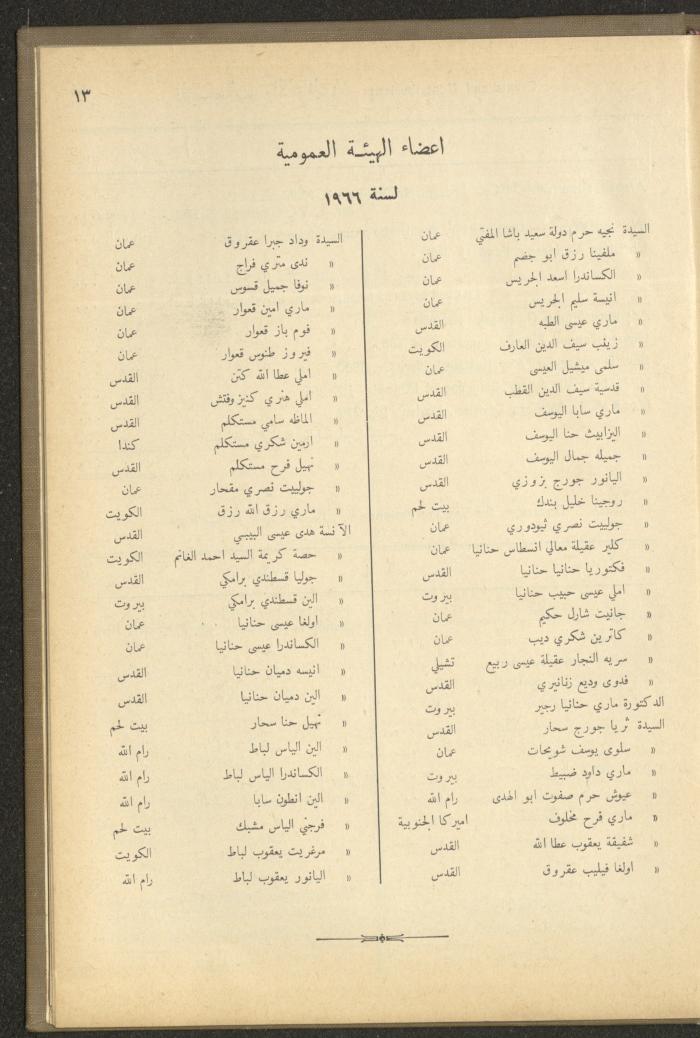 ١٣
اعضاء الهيئة العمومية
لسنة ١٩٦٦
السيدة نجيه حرم دولة سعيد باشا المفتي عمان
« ملفينا رزق ابو جضم عمان
« الكساندرا اسعد الجريس عمان
« انيسة سليم الجريس عمان
« ماري عيسى الطبه القدس
« زينب سيف الدين العارف الكويت
« سلمى ميشيل العيسى عمان
« قدسية سيف الدين القطب القدس
« ماري سابا اليوسف القدس
« اليزابيث حنا اليوسف القدس
« جميله جمال اليوسف القدس
« اليانور جورج بزوزي القدس
« روجينا خليل بندك بيت لحم
« جولييت نصري ثيودوري عمان
« كلير عقيلة معالي انسطاس حنانيا عمان
« فكتوريا حنانيا حنانيا القدس
« املي عيسى حبيب حنانيا بيروت
« جانيت شارل حكيم عمان
« كاترين شكري ديب عمان
« سريه النجار عقيلة عيسى ربيع تشيلي
« فدوى وديع زنانيري القدس
الدكتورة ماري حنانيا رجير بيروت
السيدة ثريا جورج سحار القدس
« سلوى يوسف شويحات عمان
« ماري داود ضبيط بيروت
« عيوش حرم صفوت ابو الهدى رام الله
« ماري فرح مخلوف اميركا الجنوبية
« شفيقة يعقوب عطا الله القدس
« اولغا فيليب عقروق القدس
السيدة وداد جبرا عقروق عمان
« ندى متري فراج عمان
« نوفا جميل قسوس عمان
« ماري امين قعوار عمان
« فوم باز قعوار عمان
« فيروز طنوس قعوار عمان
« املي عطا الله كتن القدس
« املي هنري كنيزوفتش القدس
« الماظه سامي مستكلم القدس
« ارمين شكري مستكلم كندا
« نهيل فرح مستكلم القدس
« جولييت نصري مقحار عمان
« ماري رزق الله رزق الكويت
الآنسة هدى عيسى البيبي القدس
« حصة كريمة السيد احمد الغانم الكويت
« جوليا قسطندي برامكي القدس
« الين قسطندي برامكي بيروت
« اولغا عيسى حنانيا عمان
« الكساندرا عيسى حنانيا عمان
« انيسه دميان حنانيا القدس
« الين دميان حنانيا القدس
« نهيل حنا سحار بيت لحم
« الين الياس لباط رام الله
« الكساندرا الياس لباط رام الله
« الين انطون سابا رام الله
« فرجني الياس مشبك بيت لحم
« مرغريت يعقوب لباط الكويت
« اليانور يعقوب لباط رام الله